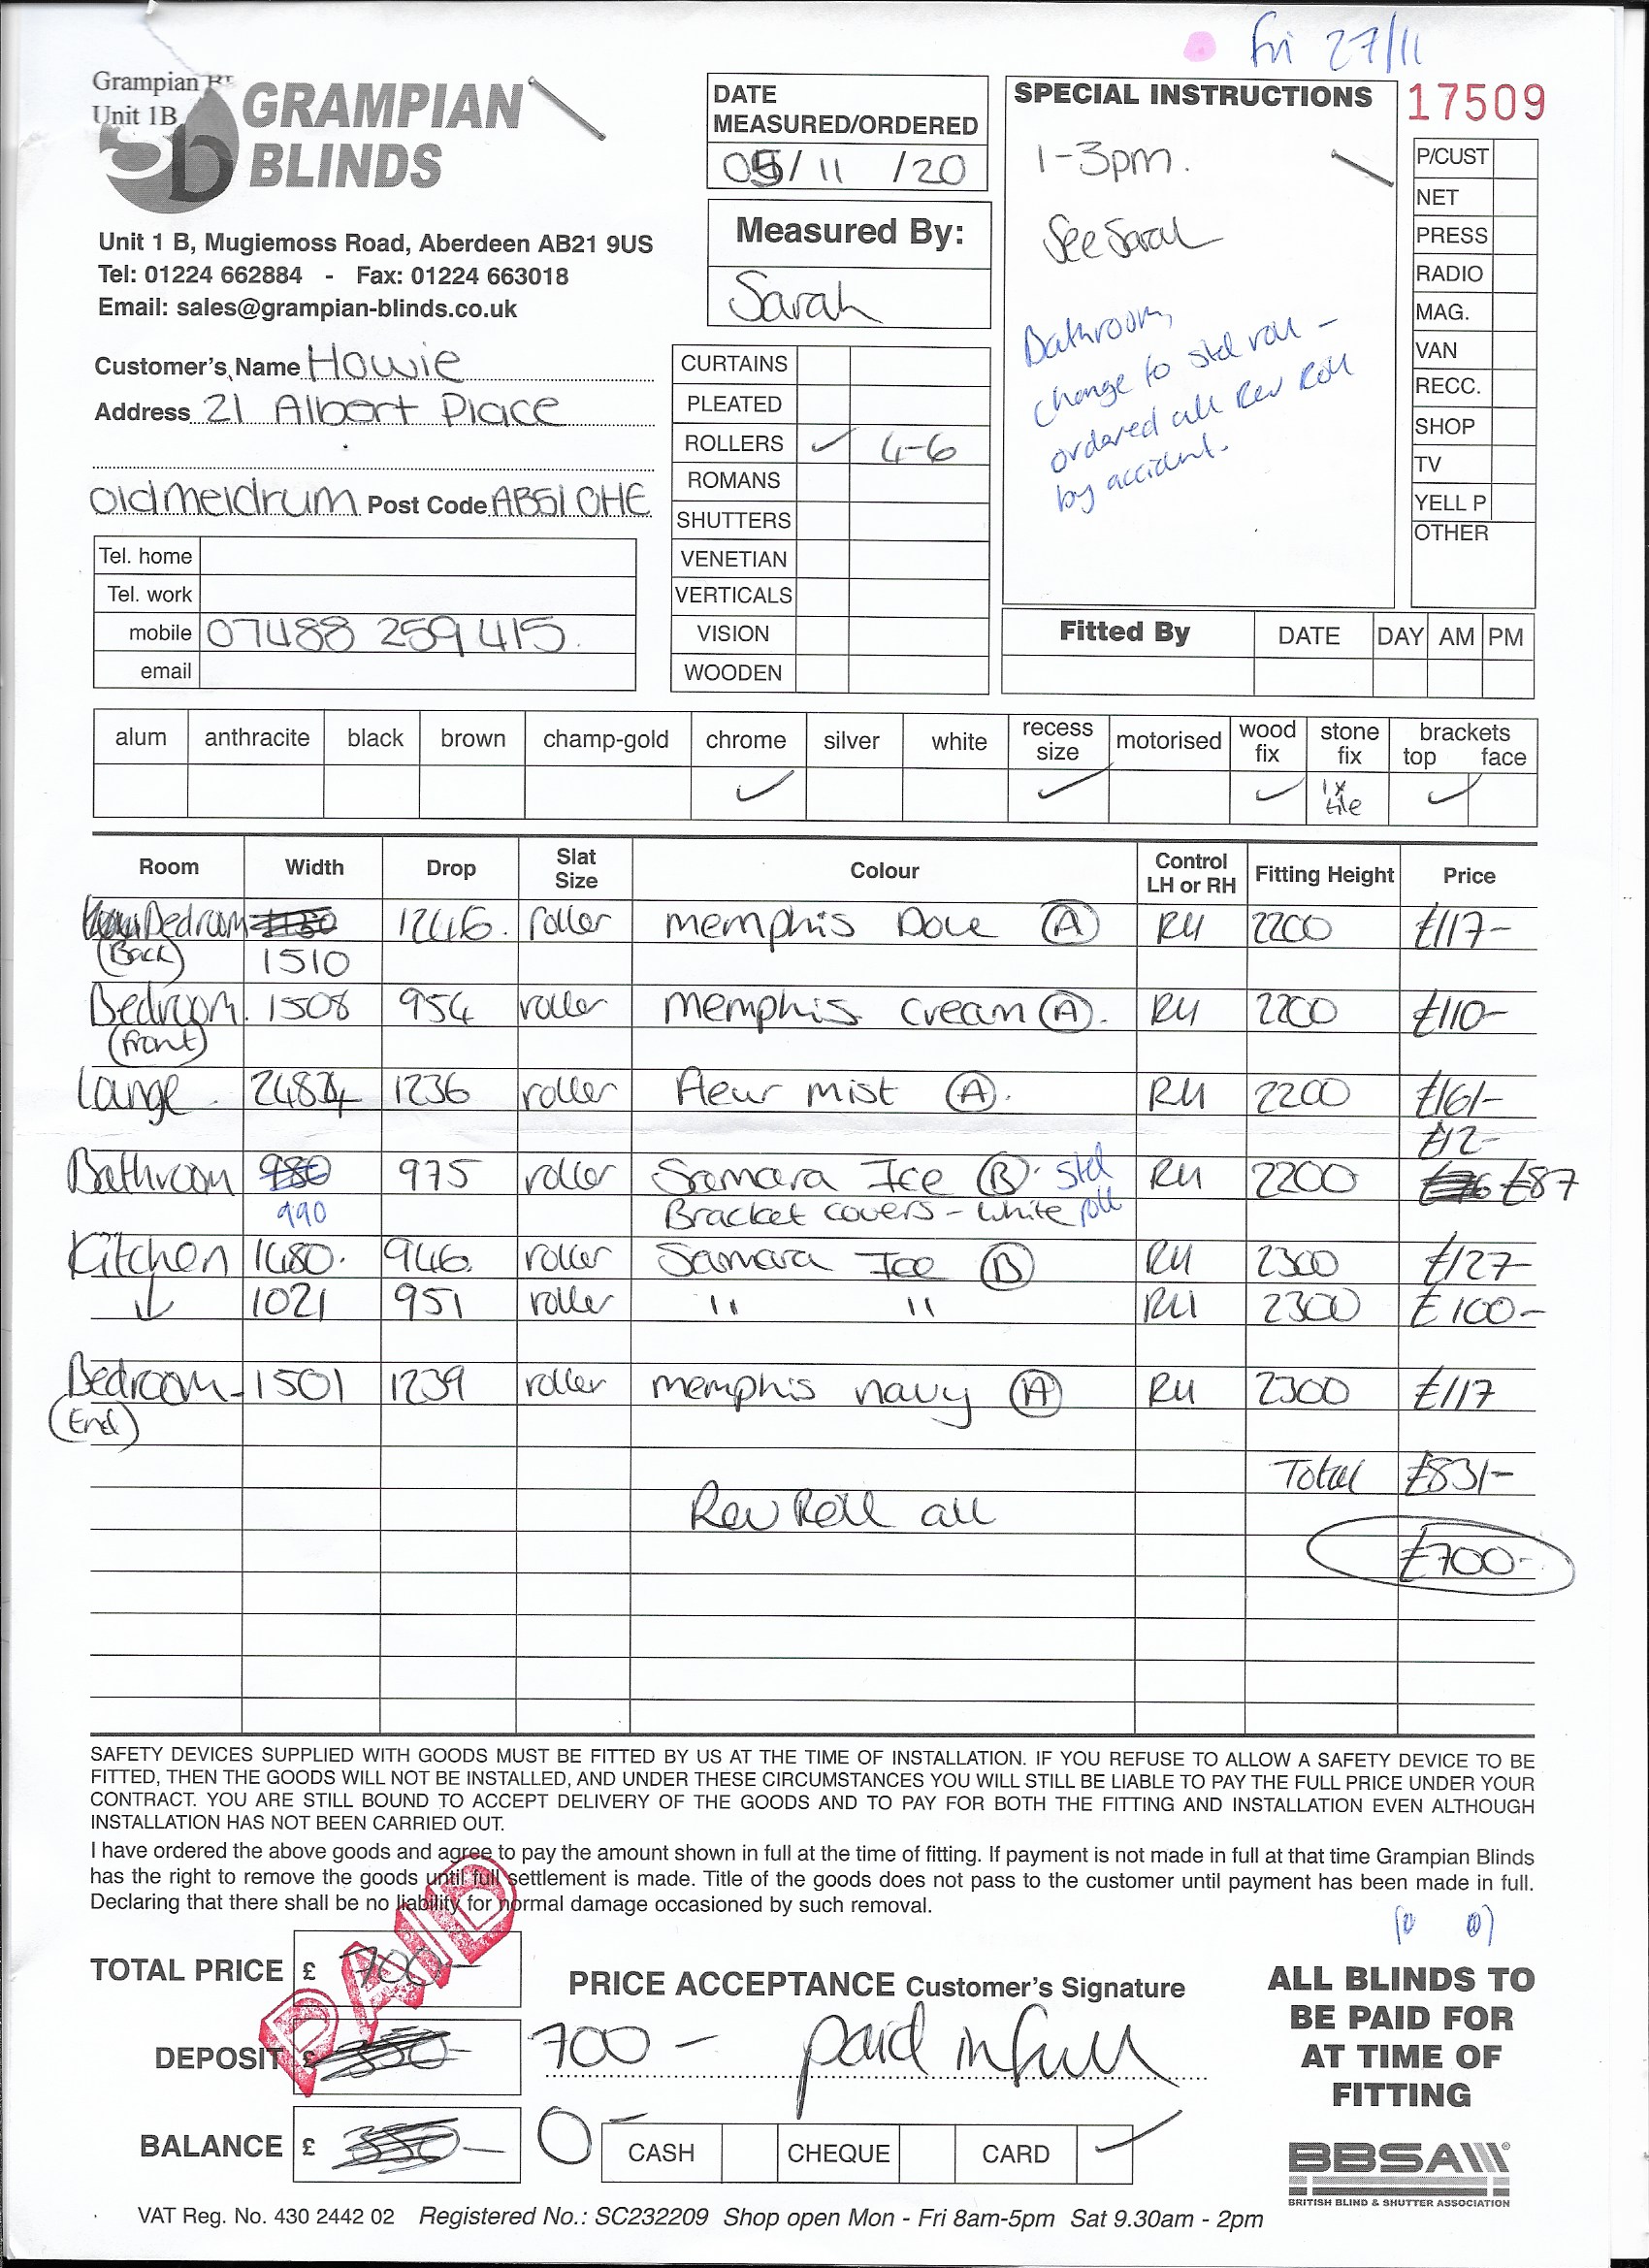 Fri 27/11
Grampian
Unit 1B
GRAMPIAN
BLINDS
Unit 1 B, Mugiemoss Road, Aberdeen AB21 9US
Tel: 01224 662884 - Fax: 01224 663018
Email: sales@grampian-blinds.co.uk
DATE
MEASURED/ORDERED
05/11/20
Measured By:
Sarah
SPECIAL INSTRUCTIONS
1-3pm.
See Sarah
Bathroom,
change to std roll -
ordered all Rev Roll
by accident.
17509
P/CUST
NET
PRESS
RADIO
MAG.
VAN
RECC.
SHOP
TV
YELL P
OTHER
Customer's Name Howie
Address 21 Albert Place
Oldmeldrum Post Code AB51 0HE
Tel. home
Tel. work
mobile 07488 259 415.
email
CURTAINS
PLEATED
ROLLERS ✓ 4-6
ROMANS
SHUTTERS
VENETIAN
VERTICALS
VISION
WOODEN
Fitted By DATE DAY AM PM
alum anthracite black brown champ-gold chrome silver white recess size motorised wood fix stone fix brackets top face
✓ ✓ ✓ 1x tile ✓
Room Width Drop Slat Size Colour Control LH or RH Fitting Height Price
Bedroom 1246. roller memphis Dove (A) RH 2200 £117-
(Back) 1510
Bedroom 1508 954 roller memphis cream (A). RH 2200 £110-
(Front)
Lounge 2484 1236 roller fleur mist (A). RH 2200 £161-
£12-
Bathroom 980 975 roller Samara Ice (B). std RH 2200 £87
990 Bracket covers - white roll
Kitchen 1480. 946. roller Samara Ice (B) RH 2300 £127-
↓ 1021 951 roller " " RH 2300 £100-
Bedroom- 1501 1239 roller memphis navy (A) RH 2300 £117
(End)
Total £831-
Rev Roll all
£700-
SAFETY DEVICES SUPPLIED WITH GOODS MUST BE FITTED BY US AT THE TIME OF INSTALLATION. IF YOU REFUSE TO ALLOW A SAFETY DEVICE TO BE
FITTED, THEN THE GOODS WILL NOT BE INSTALLED, AND UNDER THESE CIRCUMSTANCES YOU WILL STILL BE LIABLE TO PAY THE FULL PRICE UNDER YOUR
CONTRACT. YOU ARE STILL BOUND TO ACCEPT DELIVERY OF THE GOODS AND TO PAY FOR BOTH THE FITTING AND INSTALLATION EVEN ALTHOUGH
INSTALLATION HAS NOT BEEN CARRIED OUT.
I have ordered the above goods and agree to pay the amount shown in full at the time of fitting. If payment is not made in full at that time Grampian Blinds
has the right to remove the goods until full settlement is made. Title of the goods does not pass to the customer until payment has been made in full.
Declaring that there shall be no liability for normal damage occasioned by such removal.
PAID
TOTAL PRICE £ 700-
DEPOSIT £ 350-
BALANCE £ 350- 0-
PRICE ACCEPTANCE Customer's Signature
700- paid in full
CASH CHEQUE CARD ✓
ALL BLINDS TO
BE PAID FOR
AT TIME OF
FITTING
BBSA
BRITISH BLIND & SHUTTER ASSOCIATION
VAT Reg. No. 430 2442 02 Registered No.: SC232209 Shop open Mon - Fri 8am-5pm Sat 9.30am - 2pm